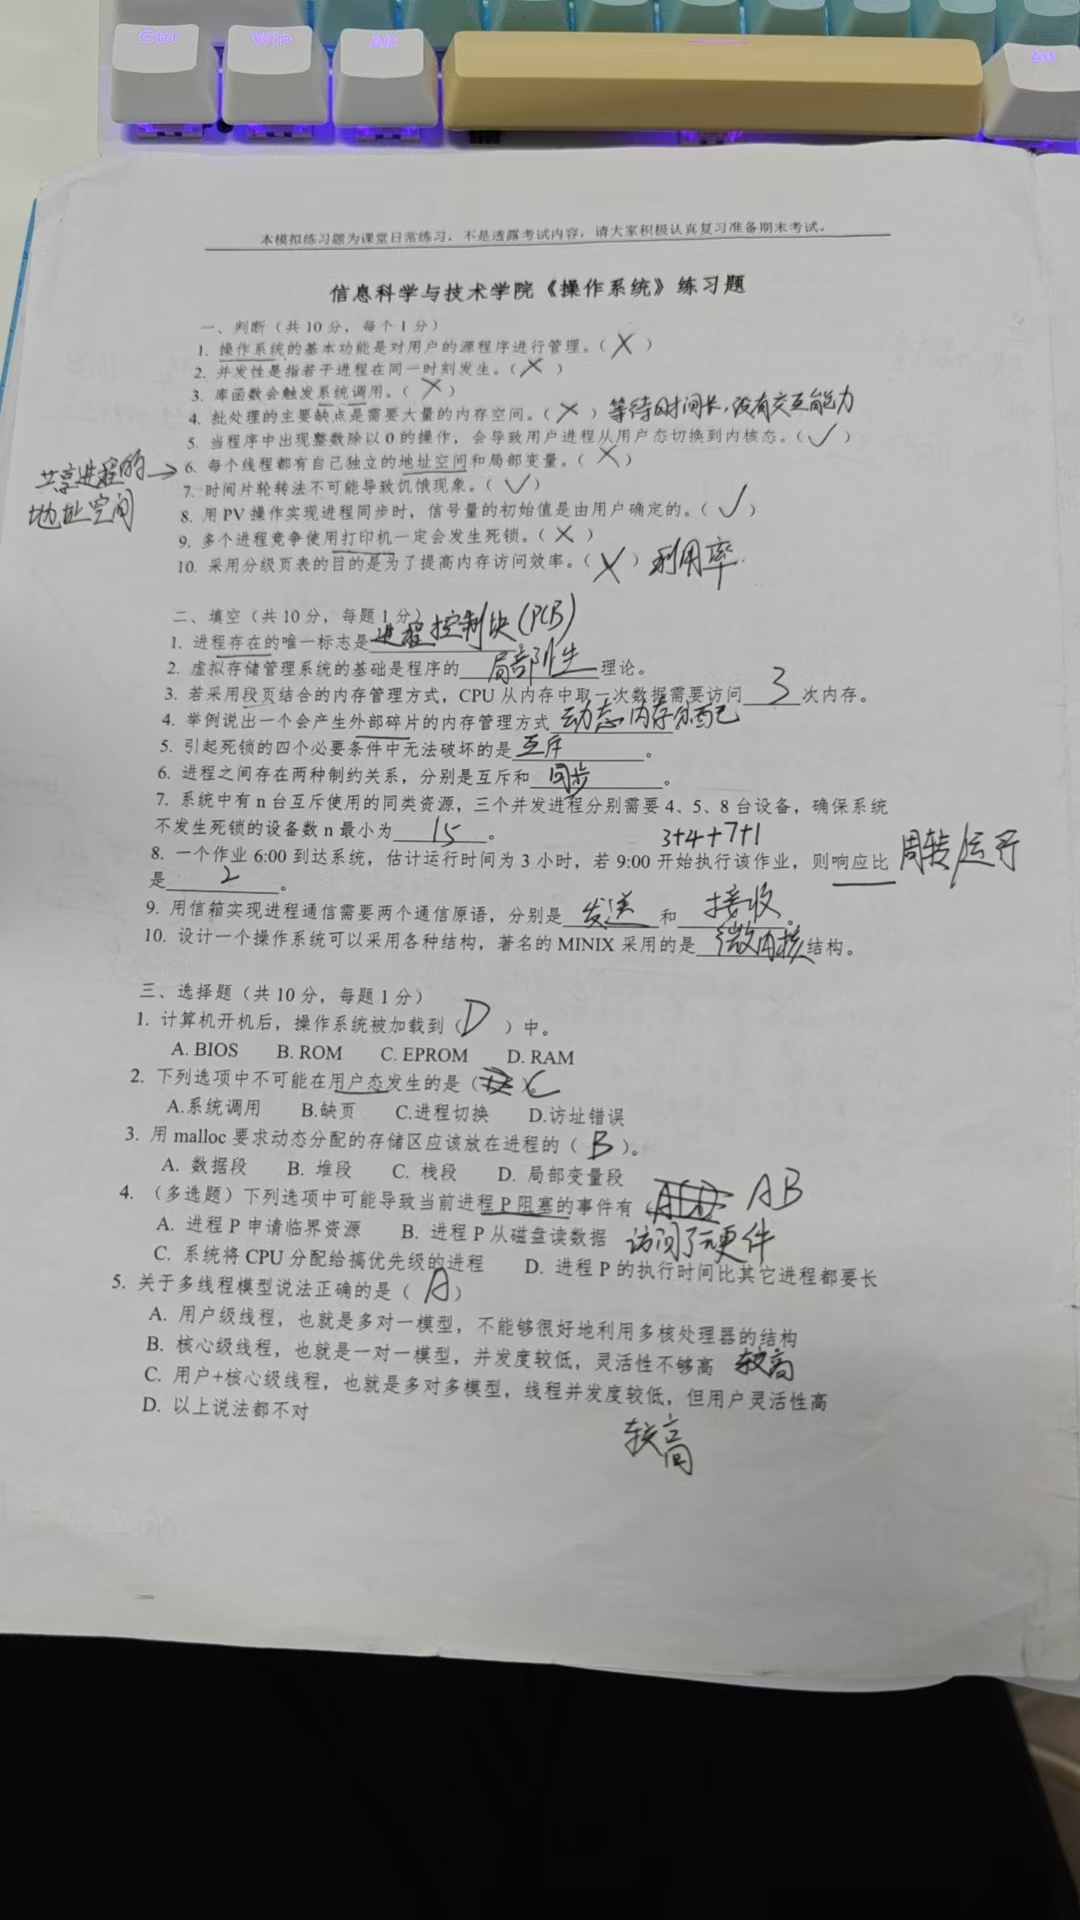 Ctrl Win Alt Alt
本模拟练习题为课堂日常练习，不是透露考试内容，请大家积极认真复习准备期末考试。
信息科学与技术学院《操作系统》练习题
一、判断（共 10 分，每个 1 分）
1. 操作系统的基本功能是对用户的源程序进行管理。（ X ）
2. 并发性是指若干进程在同一时刻发生。（ X ）
3. 库函数会触发系统调用。（ X ）
4. 批处理的主要缺点是需要大量的内存空间。（ X ）等待时间长，没有交互能力
5. 当程序中出现整数除以 0 的操作，会导致用户进程从用户态切换到内核态。（ ✓ ）
共享进程的地址空间 → 6. 每个线程都有自己独立的地址空间和局部变量。（ X ）
7. 时间片轮转法不可能导致饥饿现象。（ ✓ ）
8. 用 PV 操作实现进程同步时，信号量的初始值是由用户确定的。（ ✓ ）
9. 多个进程竞争使用打印机一定会发生死锁。（ X ）
10. 采用分级页表的目的是为了提高内存访问效率。（ X ）利用率.
二、填空（共 10 分，每题 1 分）
1. 进程存在的唯一标志是进程控制块(PCB)
2. 虚拟存储管理系统的基础是程序的 局部性 理论。
3. 若采用段页结合的内存管理方式，CPU 从内存中取一次数据需要访问 3 次内存。
4. 举例说出一个会产生外部碎片的内存管理方式 动态内存分配
5. 引起死锁的四个必要条件中无法破坏的是 互斥 。
6. 进程之间存在两种制约关系，分别是互斥和 同步 。
7. 系统中有 n 台互斥使用的同类资源，三个并发进程分别需要 4、5、8 台设备，确保系统
不发生死锁的设备数 n 最小为 15 。 3+4+7+1
8. 一个作业 6:00 到达系统，估计运行时间为 3 小时，若 9:00 开始执行该作业，则响应比 周转/运行
是 2 。
9. 用信箱实现进程通信需要两个通信原语，分别是 发送 和 接收 。
10. 设计一个操作系统可以采用各种结构，著名的 MINIX 采用的是 微内核 结构。
三、选择题（共 10 分，每题 1 分）
1. 计算机开机后，操作系统被加载到（ D ）中。
A. BIOS B. ROM C. EPROM D. RAM
2. 下列选项中不可能在用户态发生的是（ ）。C
A.系统调用 B.缺页 C.进程切换 D.访址错误
3. 用 malloc 要求动态分配的存储区应该放在进程的（ B ）。
A. 数据段 B. 堆段 C. 栈段 D. 局部变量段
4. （多选题）下列选项中可能导致当前进程 P 阻塞的事件有 AB
A. 进程 P 申请临界资源 B. 进程 P 从磁盘读数据 访问了硬件
C. 系统将 CPU 分配给搞优先级的进程 D. 进程 P 的执行时间比其它进程都要长
5. 关于多线程模型说法正确的是（ A ）
A. 用户级线程，也就是多对一模型，不能够很好地利用多核处理器的结构
B. 核心级线程，也就是一对一模型，并发度较低，灵活性不够高 较高
C. 用户+核心级线程，也就是多对多模型，线程并发度较低，但用户灵活性高
D. 以上说法都不对
较高